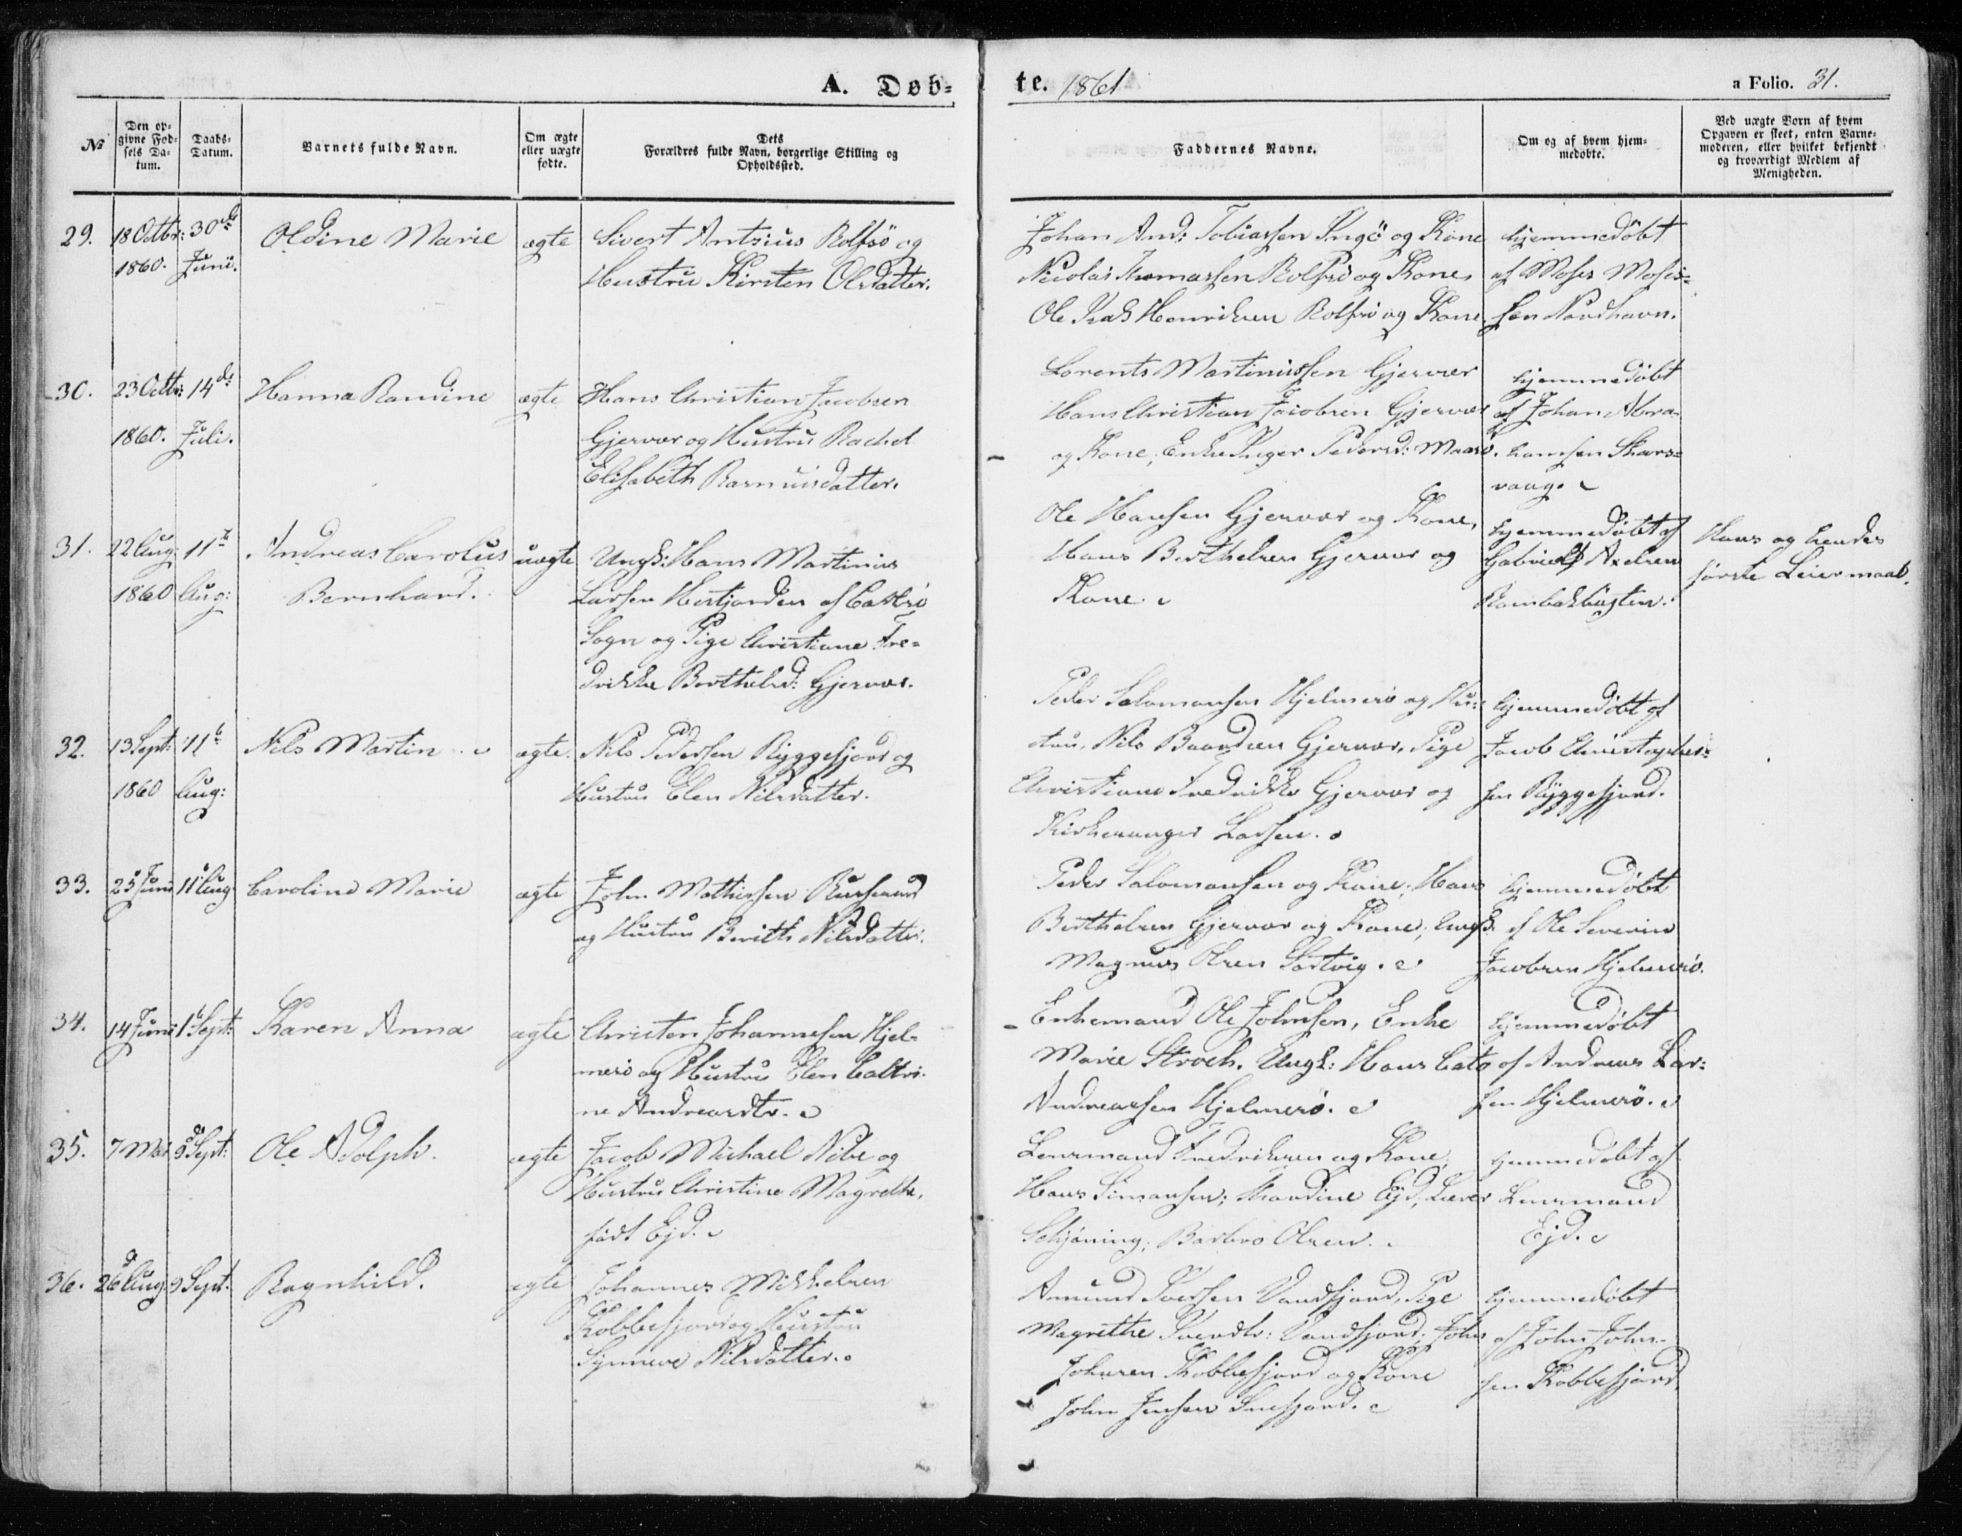 A. Døb-
te. 1861
a Folio. 31.
№
Den op-
givne Fød-
sels Da-
tum.
Daabs-
Datum.
Barnets fulde Navn.
Om ægte
eller uægte
fødte.
Dets
Forældres fulde Navn, borgerlige Stilling og
Opholdssted.
Faddernes Navne.
Om og af hvem hjem-
medøbte.
Ved uægte Børn af hvem
Opgaven er skeet, enten Barne-
moderen, eller hvilket bekjendt
og troværdigt Medlem af
Menigheden.
29.
18 Octbr:
1860.
30te
Juni.
Oldine Marie
ægte
Sivert Antzius Rolfsø og
Hustru Kirsten Olsdatter.
Johan And: Tobiassen Ingö og Kone
Nicolai Thomassen Rolfsö og Kone,
Ole Isak Henriksen Rolfsö og Kone.
hjemmedöbt
af Moses Moses-
sen Nordhavn.
30.
23 Octbr:
1860.
14de
Juli.
Hanna Randine
ægte
Hans Christian Jacobsen
Gjesvær og Hustru Rachel
Elisabeth Rasmusdatter.
Lorents Martinussen Gjesvær
Hans Christian Jacobsen Gjesvær
og Kone, Enke Inger Pedersd: Maasö.
hjemmedöbt
af Johan Abra-
hamsen Skars-
vaag.
31.
22 Aug.
1860
11te
Aug:
Andreas Carolus
Bernhard.
uægte
Ungk: Hans Martinius
Larsen Hestfjorden af
Sogn og Pige Christiane Fre-
drikke Berthelsd: Gjesvær.
Ole Hansen Gjesvær og Kone,
Hans Berthelsen Gjesvær og
Kone.
hjemmedöbt af
Gabriel Axelsen
Hans og hendes
förste Leiermaal.
32.
13 Sept:
1860
11te
Aug:
Nils Martin
ægte.
Nils Pedersen Ryggefjord og
Hustru Elen Nilsdatter.
Peder Salomonsen Hjelmsö og Hu-
stru, Nils Baardsen Gjesvær, Pige
Christiane Fredrikke Gjesvær og
Kirkesanger Larsen.
hjemmedöbt af
Jacob Christopher-
sen Ryggefjord.
33.
25 Juni
11te Aug
Caroline Marie
ægte
John Mathissen
og Hustru Berith Nilsdatter.
Peder Salomonsen og Kone, Hans
Berthelsen Gjesvær og Kone, Ungk:
Magnus Olsen Sortvig.
hjemmedöbt
af Ole Severin
Jacobsen Hjelmsö.
34.
14 Juni
1te Sept:
Karen Anna
ægte
Christen Johannesen Hjel-
msö og Hustru Elen Cathri-
ne Andreasdtr.
Enkemand Ole Johnsen, Enke
Marie Stroch. Ungk: Hans Cato
Andreassen Hjelmsö.
hjemmedöbt
af Andreas Lar-
sen Hjelmsö.
35.
7 Mai
8de Sept:
Ole Adolph.
ægte
Jacob Michael Nibe og
Hustru Christine Magrethe,
født Ejd.
Lensmand Fredriksen og Kone,
Hans Simonsen; Ejd, Lærer
Schjöning; Barbro Olsen.
hjemmedöbt af
Lensmand
Ejd.
36.
26de Aug.
9 Sept.
Ragnhild.
ægte
Johannes Mikkelsen
Kobbefjord og Hustru
Synneve Nilsdatter.
Amund Iversen Vandfjord, Pige
Magrethe Vandfjord, John
Johnsen Kobbefjord og Kone
John Jensen Snefjord.
hjemmedöbt
af John John-
sen Kobbefjord.